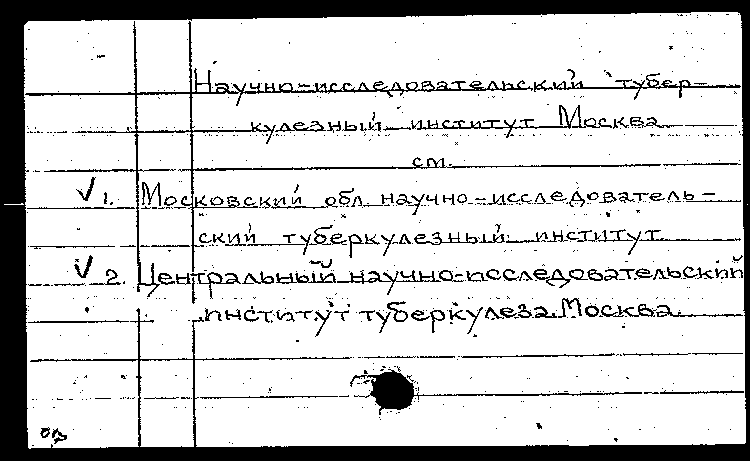 Научно-исследовательский тубер-
кулезный институт Москва
см.
V 1. Московский обл. научно-исследователь-
ский туберкулезный институт
V 2. Центральный научно-исследовательский
институт туберкулеза. Москва